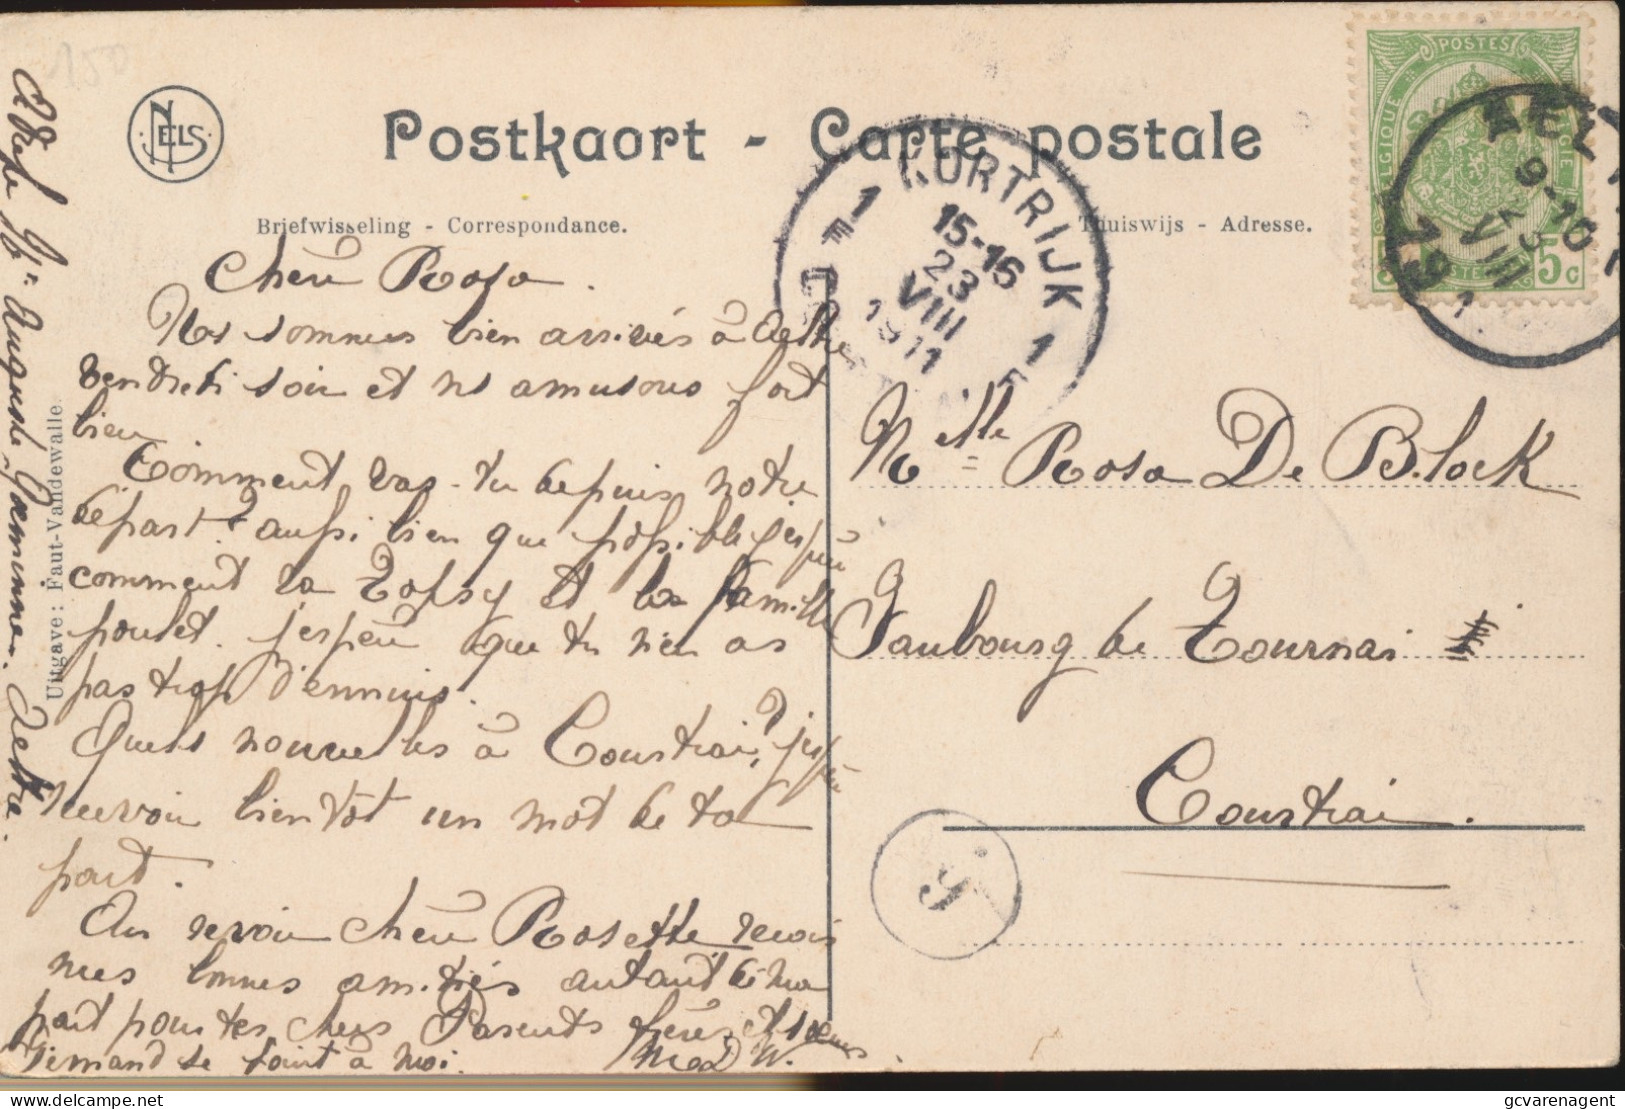 150
NELS
Postkaart - Carte postale
Briefwisseling - Correspondance.
Thuiswijs - Adresse.
POSTES
BELGIQUE
BELGIË
5 5c
POSTERIJEN
AELT
9-10
23
VIII
1
KORTRIJK
15-16
23
VIII
1911
1 F
1 F
Uitgave: Faut-Vandewalle.
Adresse Mr Auguste Gaeminne. Aeltre.
Chère Rosa.
Nos sommes bien arrivés à Aeltre
vendredi soir et ns amusons fort
bien.
Comment vas-tu depuis notre
départ? aussi bien que possible j'espère
comment va Topsy et la famille
poulet. j'espère que tu n'en as
pas trop d'ennuis.
Quels nouvelles à Courtrai? j'espère
recevoir bientôt un mot de ta
part.
Au revoir chère Rosette reçois
mes bonnes amitiés autant de ma
part pour tes chers Parents frères et soeurs
Fernand se joint à moi.
M D W.
Melle Rosa De Block
Faubourg de Tournai
Courtrai.
9
gcvarenagent